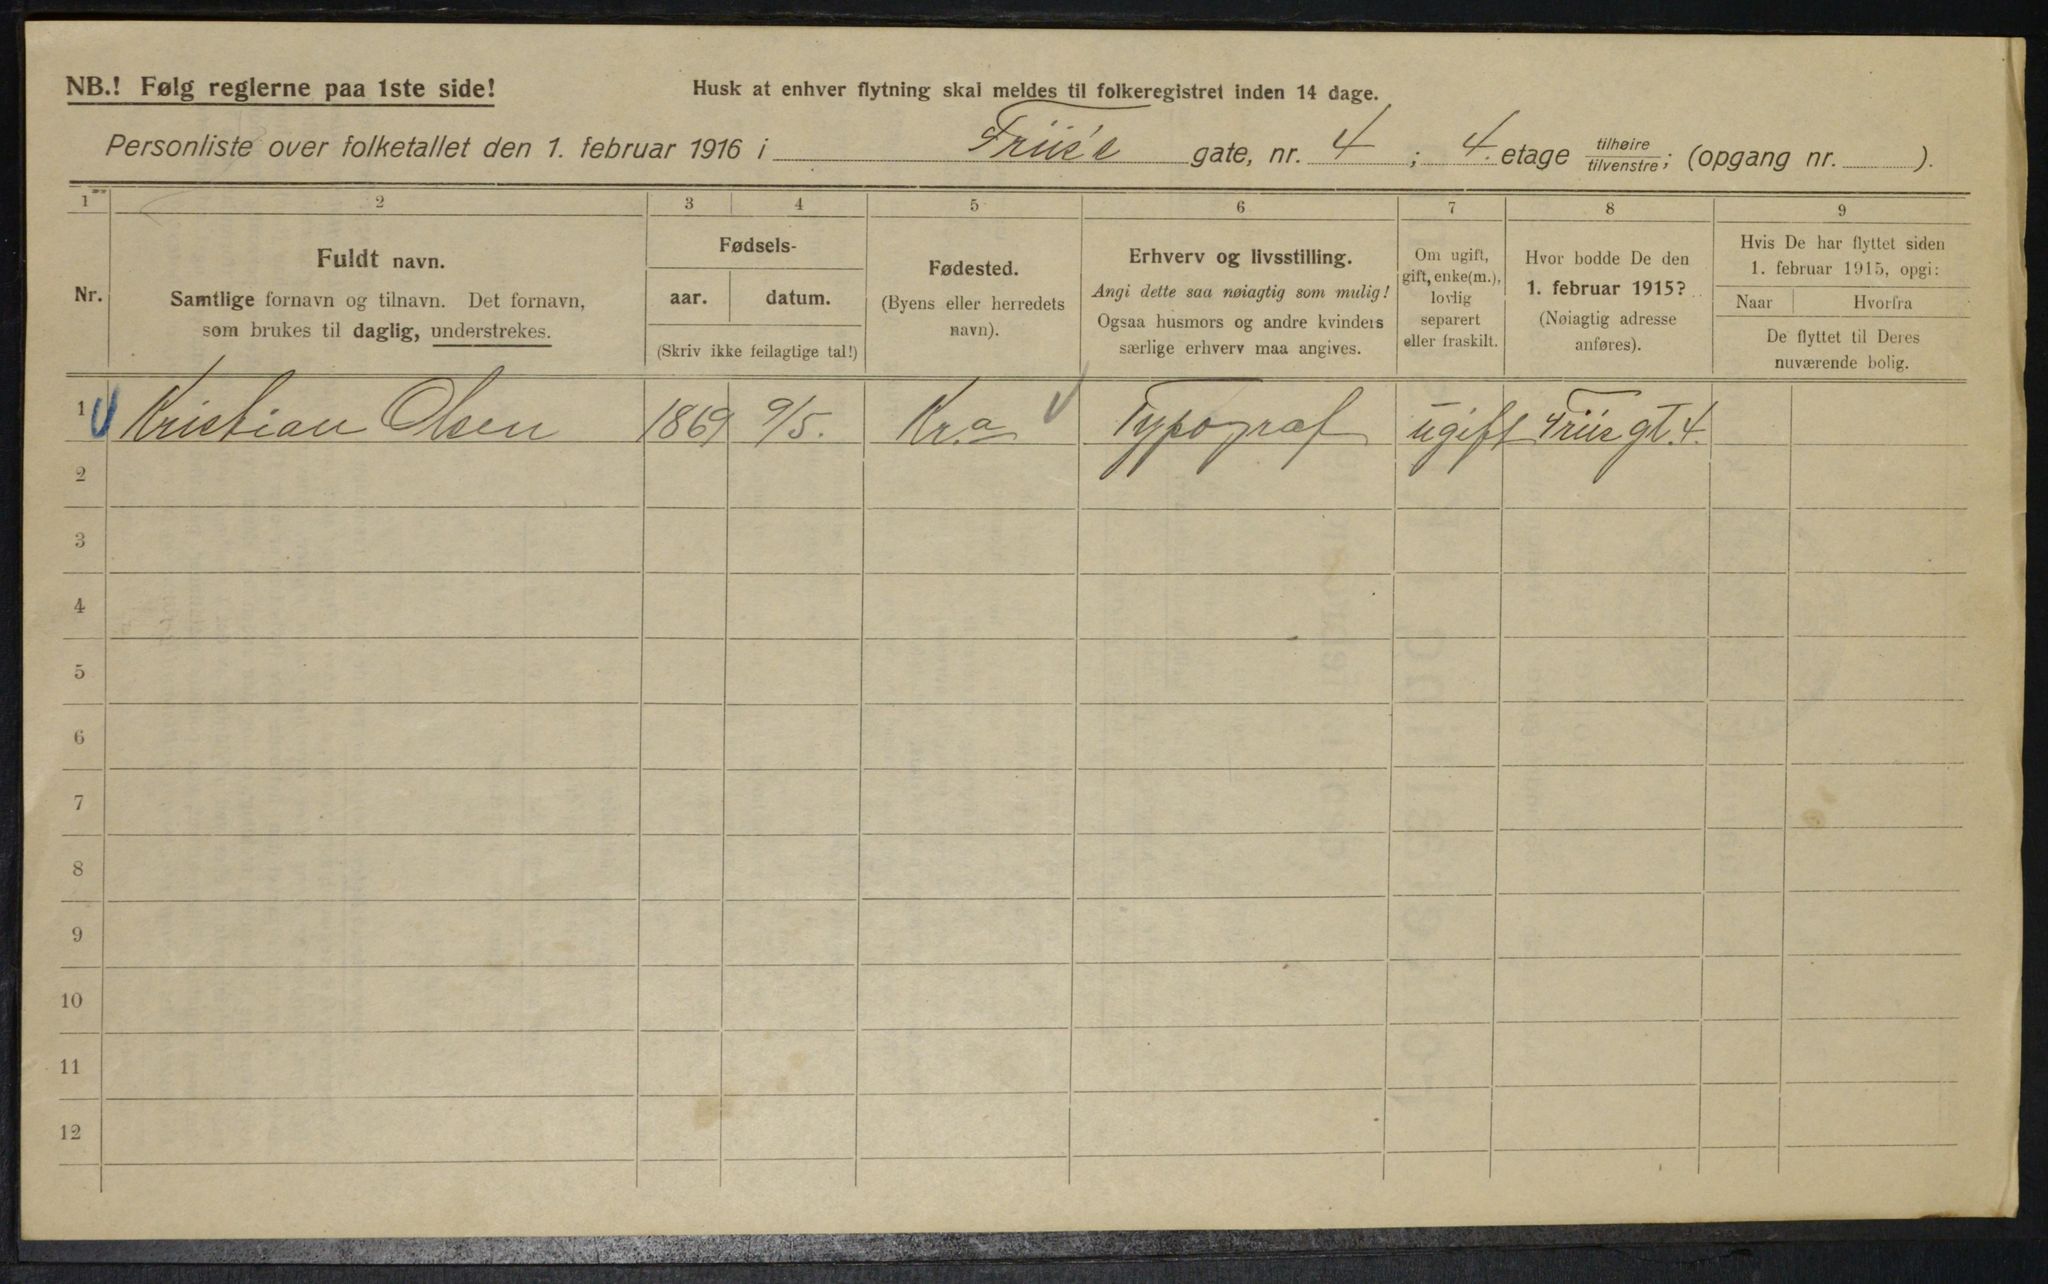 NB.! Følg reglerne paa 1ste side!
Husk at enhver flytning skal meldes til folkeregistret inden 14 dage.
Personliste over folketallet den 1. februar 1916 i Friis's gate, nr. 4 ; 4. etage tilhøire/tilvenstre; (opgang nr. ).
1 2 3 4 5 6 7 8 9
Nr.
Fuldt navn.
Samtlige fornavn og tilnavn. Det fornavn,
som brukes til daglig, understrekes.
Fødsels-
aar. datum.
(Skriv ikke feilagtige tal!)
Fødested.
(Byens eller herredets
navn).
Erhverv og livsstilling.
Angi dette saa nøiagtig som mulig!
Ogsaa husmors og andre kvinders
særlige erhverv maa angives.
Om ugift,
gift, enke(m.),
lovlig
separert
eller fraskilt.
Hvor bodde De den
1. februar 1915?
(Nøiagtig adresse
anføres).
Hvis De har flyttet siden
1. februar 1915, opgi:
Naar Hvorfra
De flyttet til Deres
nuværende bolig.
1 Kristian Olsen 1869 9/5. Kr.a Typograf ugift Friis gt. 4.
2
3
4
5
6
7
8
9
10
11
12